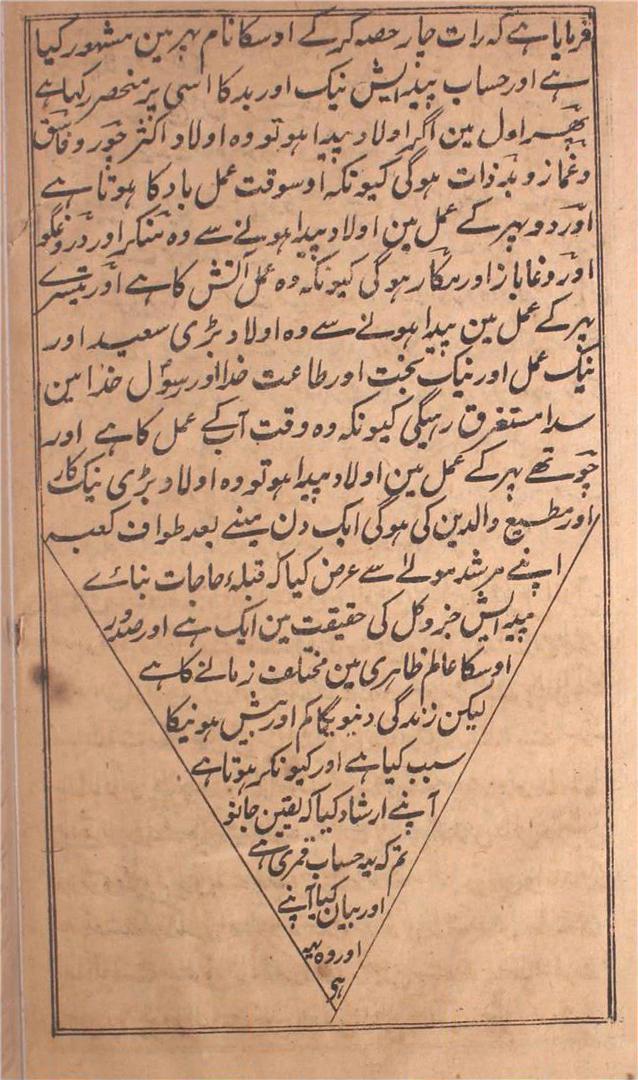 فرمایا ہے کہ رات چار حصہ کرکے اوسکا نام پہر مین مشہور کیا
ہے اور حساب پیدایش نیک اور بد کا اسی پر منحصر کہا ہے
پہر اول مین اگر اولاد پیدا ہو تو وہ اولاد اکثر چور و فاسق
و غماز و بد ذات ہوگی کیونکہ اوسوقت عمل باد کا ہوتا ہے
اور دو پہر کے عمل مین اولاد پیدا ہونے سے وہ منکر اور دروغگو
اور دغاباز اور مکار ہوگی کیونکہ وہ عمل آتش کا ہے اور تیسرے
پہر کے عمل مین پیدا ہونے سے وہ اولاد بڑی سعید اور
نیک عمل اور نیک بخت اور طاعت خدا اور رسول خدا مین
سدا مستغرق رہیگی کیونکہ وہ وقت آب کے عمل کا ہے اور
چوتھے پہر کے عمل مین اولاد پیدا ہو تو وہ اولاد بڑی نیک کار
اور مطیع والدین کی ہوگی ایک دن مینے بعد طواف کعبہ
اپنے مرشد مولے سے عرض کیا کہ قبلۂ حاجات بنائے
پیدایش جز و کل کی حقیقت مین ایک ہے اور صدور
اوسکا عالم ظاہری مین مختلف زمانے کا ہے
لیکن زندگی دنیویکا کم اور بیش ہونیکا
سبب کیا ہے اور کیونکر ہوتا ہے
آپنے ارشاد کیا کہ یقین جانو
تم کہ یہ حساب قمری ہے
اور بیان کیا آپنے
اور وہ یہہ
ہی